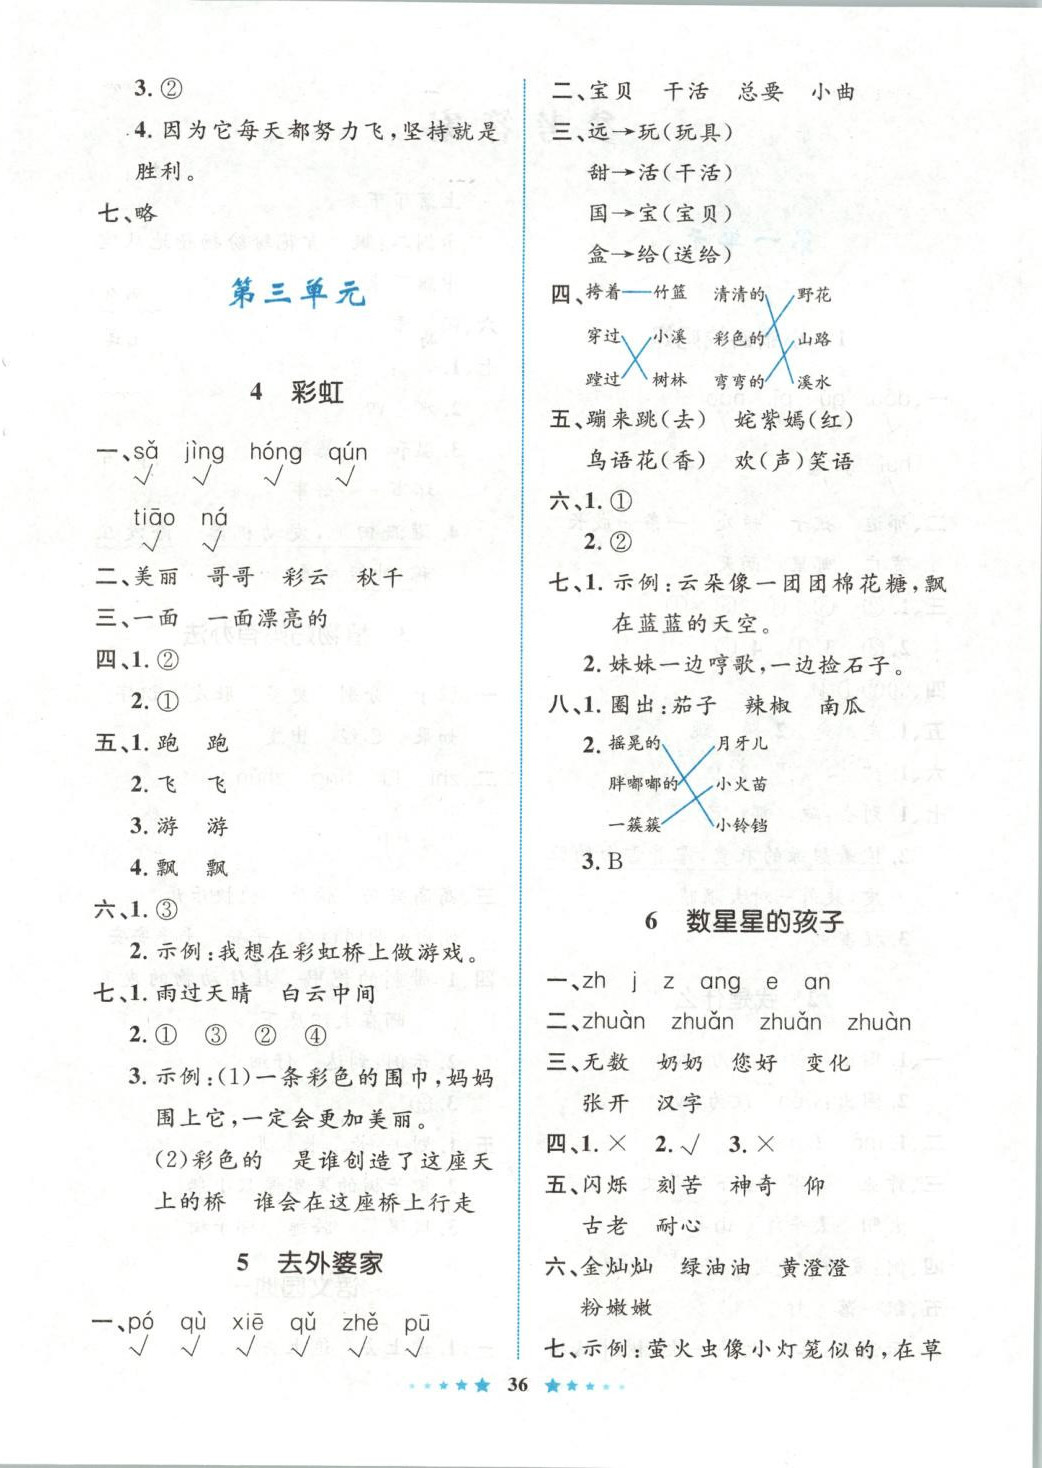 3. ②
4. 因为它每天都努力飞,坚持就是
胜利。
七、略
第三单元
4 彩虹
一、sǎ jìng hóng qún
√ √ √ √
tiāo ná
√ √
二、美丽 哥哥 彩云 秋千
三、一面 一面漂亮的
四、1. ②
2. ①
五、1. 跑 跑
2. 飞 飞
3. 游 游
4. 飘 飘
六、1. ③
2. 示例:我想在彩虹桥上做游戏。
七、1. 雨过天晴 白云中间
2. ① ③ ② ④
3. 示例:(1)一条彩色的围巾,妈妈
围上它,一定会更加美丽。
(2)彩色的 是谁创造了这座天
上的桥 谁会在这座桥上行走
5 去外婆家
一、pó qù xiē qǔ zhě pū
√ √ √ √ √ √
二、宝贝 干活 总要 小曲
三、远→玩(玩具)
甜→活(干活)
国→宝(宝贝)
盒→给(送给)
四、挎着 竹篮 清清的 野花
穿过 小溪 彩色的 山路
蹚过 树林 弯弯的 溪水
五、蹦来跳(去) 姹紫嫣(红)
鸟语花(香) 欢(声)笑语
六、1. ①
2. ②
七、1. 示例:云朵像一团团棉花糖,飘
在蓝蓝的天空。
2. 妹妹一边哼歌,一边捡石子。
八、1. 圈出:茄子 辣椒 南瓜
2. 摇晃的 月牙儿
胖嘟嘟的 小火苗
一簇簇 小铃铛
3. B
6 数星星的孩子
一、zh j z ang e an
二、zhuàn zhuǎn zhuǎn zhuàn
三、无数 奶奶 您好 变化
张开 汉字
四、1. × 2. √ 3. ×
五、闪烁 刻苦 神奇 仰
古老 耐心
六、金灿灿 绿油油 黄澄澄
粉嫩嫩
七、示例:萤火虫像小灯笼似的,在草
36